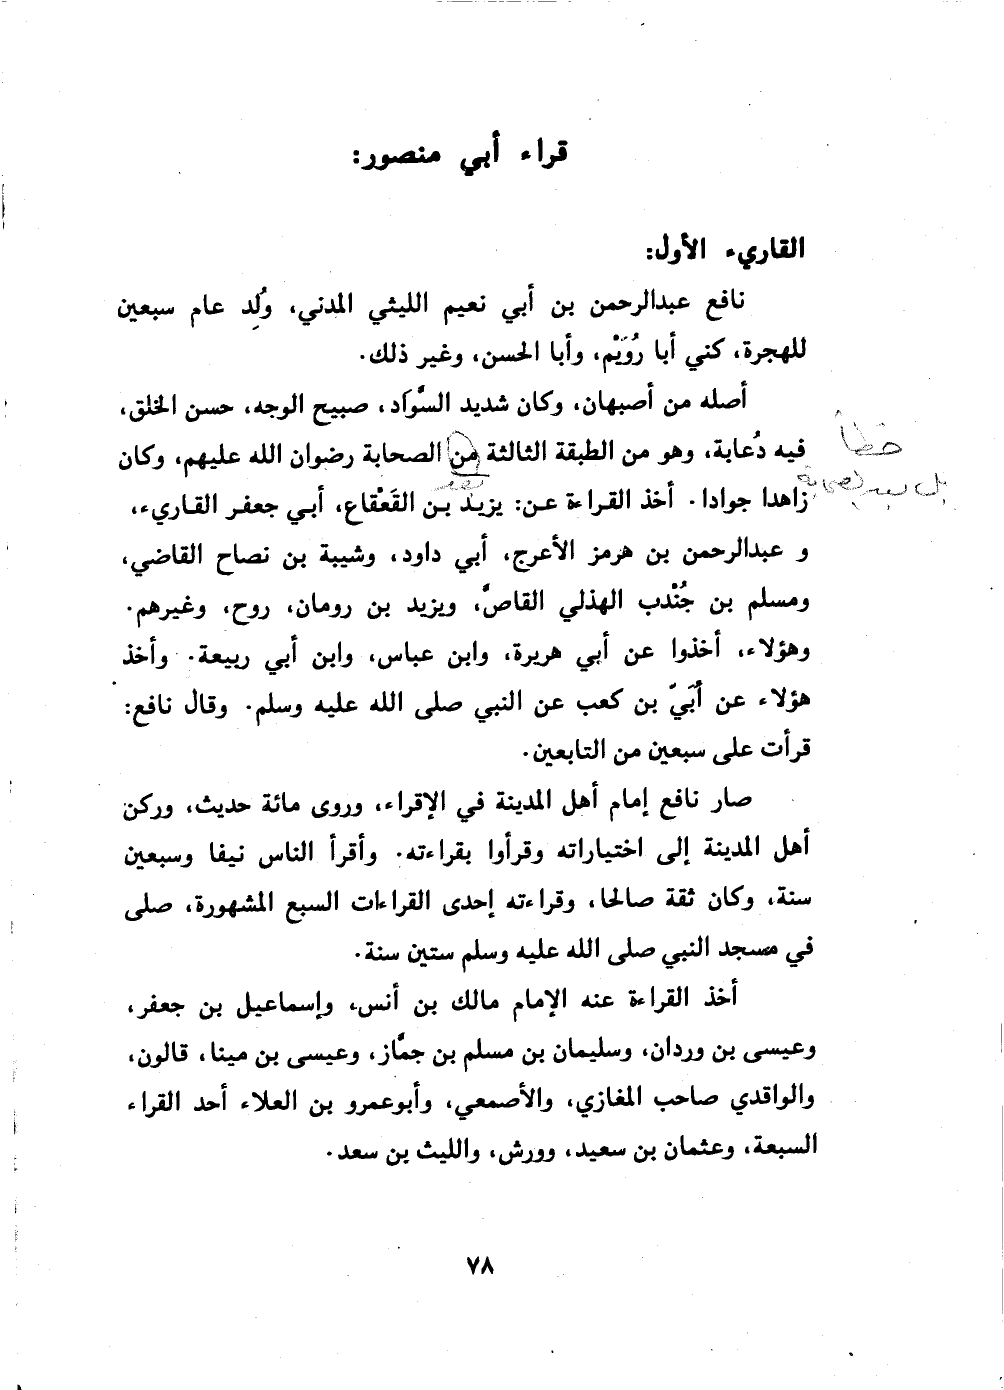 قراء أبي منصور:
القاريء الأول:
نافع عبدالرحمن بن أبي نعيم الليثي المدني، وُلِد عام سبعين
للهجرة، كني أبا رُوَيْم، وأبا الحسن، وغير ذلك.
أصله من أصبهان، وكان شديد السَّوَاد، صبيح الوجه، حسن الخلق،
فيه دُعابة، وهو من الطبقة الثالثة من الصحابة رضوان الله عليهم، وكان
خطأ
بل بعد الصحابة
بعد
زاهدا جوادا. أخذ القراءة عن: يزيد بن القَعْقاع، أبي جعفر القاريء،
و عبدالرحمن بن هرمز الأعرج، أبي داود، وشيبة بن نصاح القاضي،
ومسلم بن جُنْدب الهذلي القاصّ، ويزيد بن رومان، روح، وغيرهم.
وهؤلاء، أخذوا عن أبي هريرة، وابن عباس، وابن أبي ربيعة. وأخذ
هؤلاء عن أُبَيّ بن كعب عن النبي صلى الله عليه وسلم. وقال نافع:
قرأت على سبعين من التابعين.
صار نافع إمام أهل المدينة في الإقراء، وروى مائة حديث، وركن
أهل المدينة إلى اختياراته وقرأوا بقراءته. وأقرأ الناس نيفا وسبعين
سنة، وكان ثقة صالحا، وقراءته إحدى القراءات السبع المشهورة، صلى
في مسجد النبي صلى الله عليه وسلم ستين سنة.
أخذ القراءة عنه الإمام مالك بن أنس، وإسماعيل بن جعفر،
وعيسى بن وردان، وسليمان بن مسلم بن جمَّاز، وعيسى بن مينا، قالون،
والواقدي صاحب المغازي، والأصمعي، وأبوعمرو بن العلاء أحد القراء
السبعة، وعثمان بن سعيد، وورش، والليث بن سعد.
٧٨